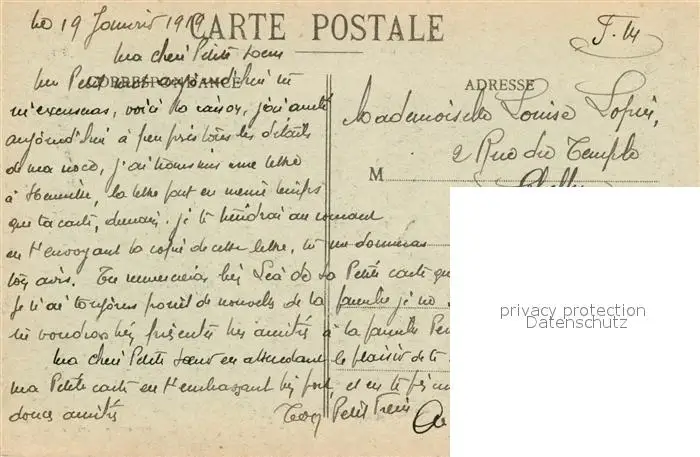 le 19 Janvier 1919
CARTE POSTALE
F. M
Ma cheri Petite Soeur
CORRESPONDANCE
Un Petit mot aujourd'hui tu
m'excuseras, voici la raison, j'ai
aujourd'hui à peu près tous les détails
de ma noce, j'ai transmis une lettre
à la lettre part en même temps
que ta carte, demain. je te tiendrai au courant
en t'envoyant la copie de cette lettre, tu me donneras
ton avis. Tu remercieras bien Léa de La Petite carte
Je n'ai toujours point de nouvelles de la famille je
tu voudras bien présenter mes amitiés à la famille
Ma cheri Petite soeur en attendant le plaisir de te
ma Petite carte en t'embrassant bien fort, et en te
douces amitiés
Ton Petit Frère
ADRESSE
Mademoiselle Louise
2 Rue du Temple
M
privacy protection
Datenschutz